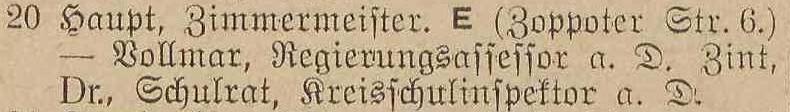 20 Haupt, Zimmermeiſter. E (Zoppoter Str. 6.)
— Vollmar, Regierungsaſſeſſor a. D. Zint,
Dr., Schulrat, Kreisſchulinſpektor a. D.